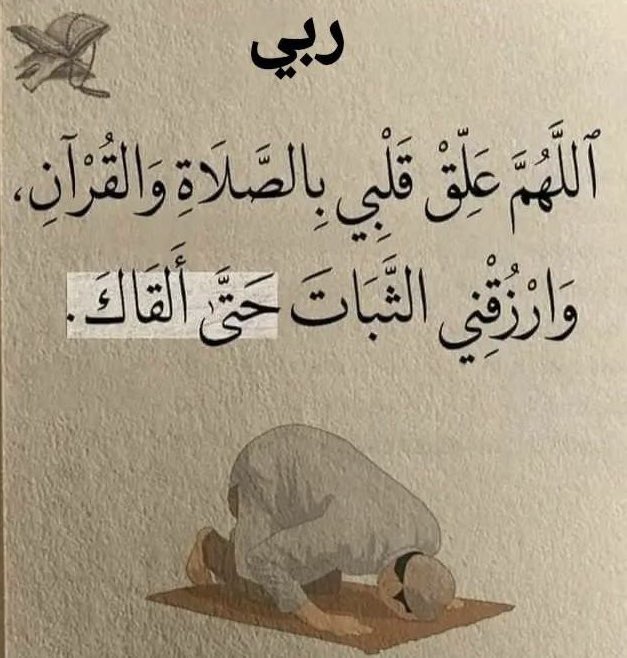 ربي
ٱللَّهُمَّ عَلِّقْ قَلْبِي بِالصَّلَاةِ وَالقُرْآنِ،
وَارْزُقْنِي الثَّبَاتَ حَتَّىٰ أَلقَاكَ.